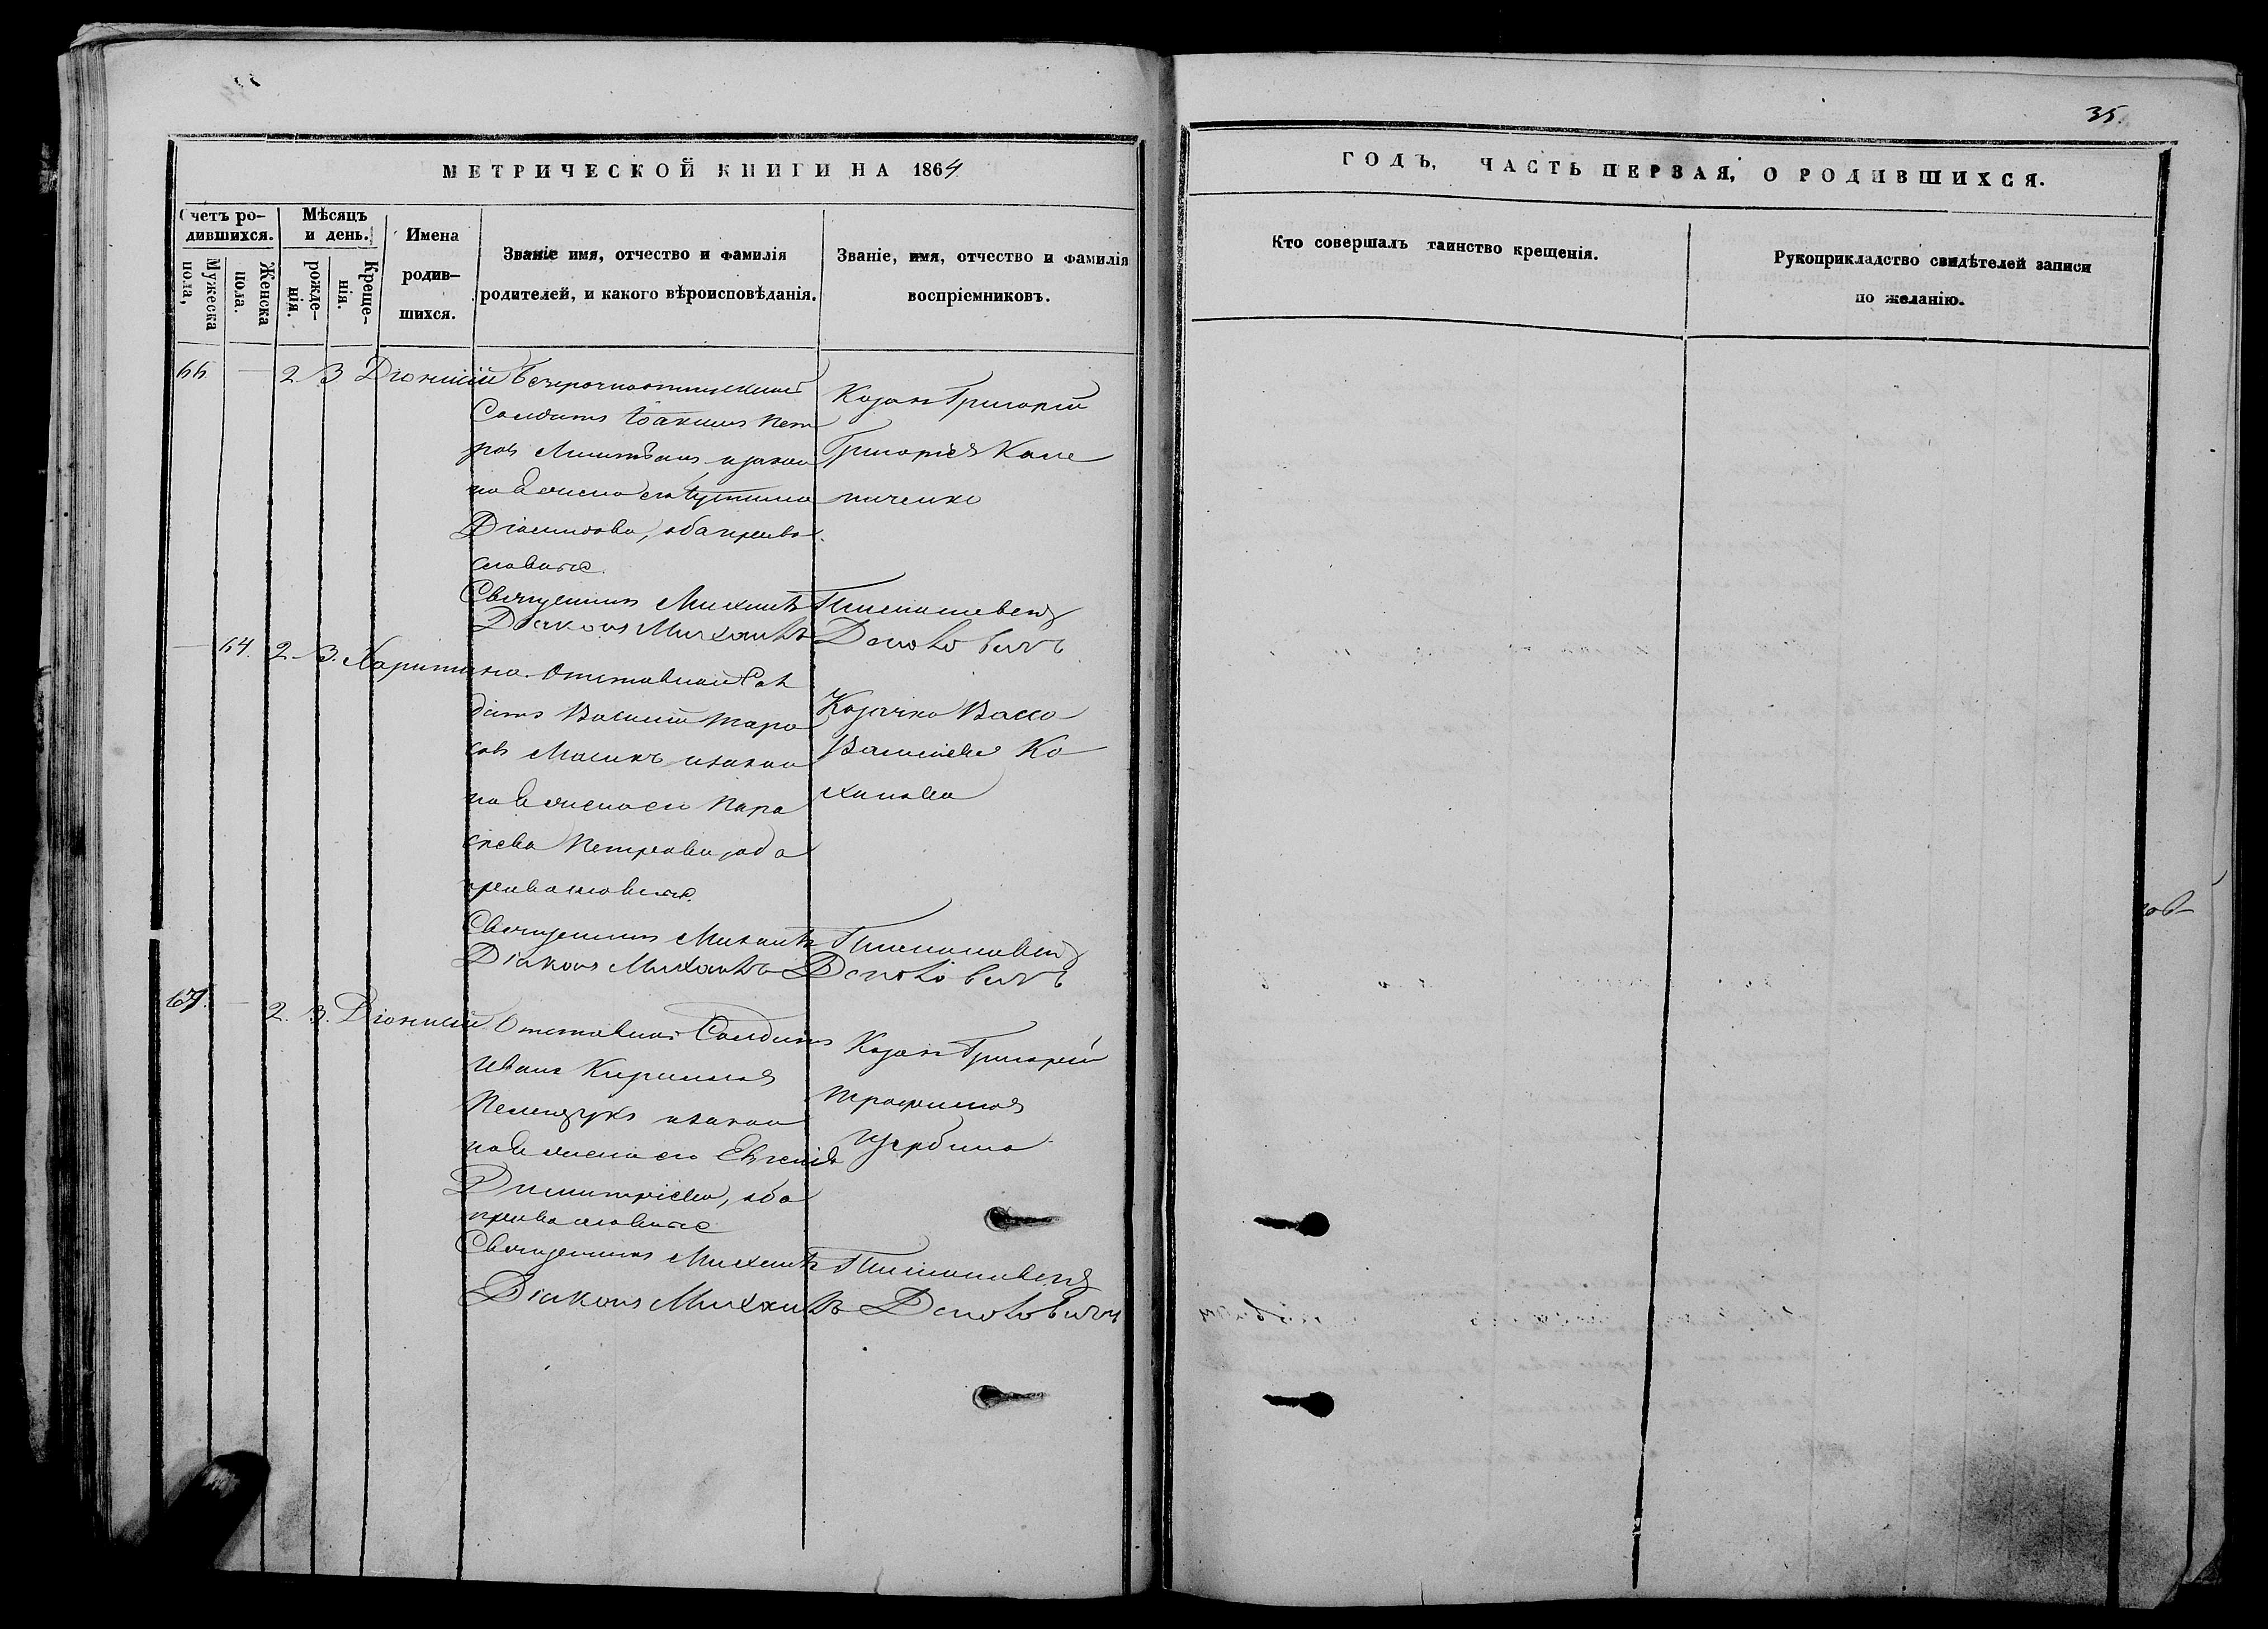 35.
МЕТРИЧЕСКОЙ КНИГИ НА 1864
ГОДЪ, ЧАСТЬ ПЕРВАЯ, О РОДИВШИХСЯ.
Счетъ ро-
дившихся.
Мужеска
пола,
Женска
пола.
Мѣсяцъ
и день.
рожде-
нія.
Креще-
нія.
Имена
родив-
шихся.
Званіе имя, отчество и фамилія
родителей, и какого вѣроисповѣданія.
Званіе, имя, отчество и фамилія
воспріемниковъ.
Кто совершалъ таинство крещенія.
Рукоприкладство свидѣтелей записи
по желанію.
66 — 2 3 Діонисій
Солдатъ Іоакимъ Пет
ровъ и закон
ная жена его
Діомидова, оба право
славные.
Козакъ Григорій
Григоріевъ Коле
ниченко
Священникъ Михаилъ
Діаконъ Михаилъ
— 64. 2. 3. Харитина
Отставной Сол
датъ Василій Тара
совъ Масикъ и закон
ная жена его Пара
скева Петрова, оба
православные.
Козачка Васса
Василіева Ко
ханова
Священникъ Михаилъ
Діаконъ Михаилъ
67. — 2. 3. Діонисій
Отставной Солдатъ
Иванъ Кириловъ
и закон
ная жена его Евгенія
Димитріева, оба
православные
Козакъ Григорій
Трофимовъ
Щербина
Священникъ Михаилъ
Діаконъ Михаилъ